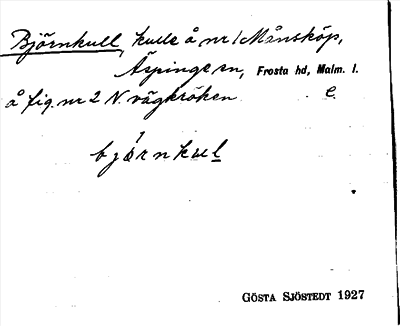 Björnkull, kulle å nr 1 Månsköp,
Äspinge sn, Frosta hd, Malm. l.
å fig. nr 2 N. vägkröken e.
bjö́rnkul
GÖSTA SJÖSTEDT 1927